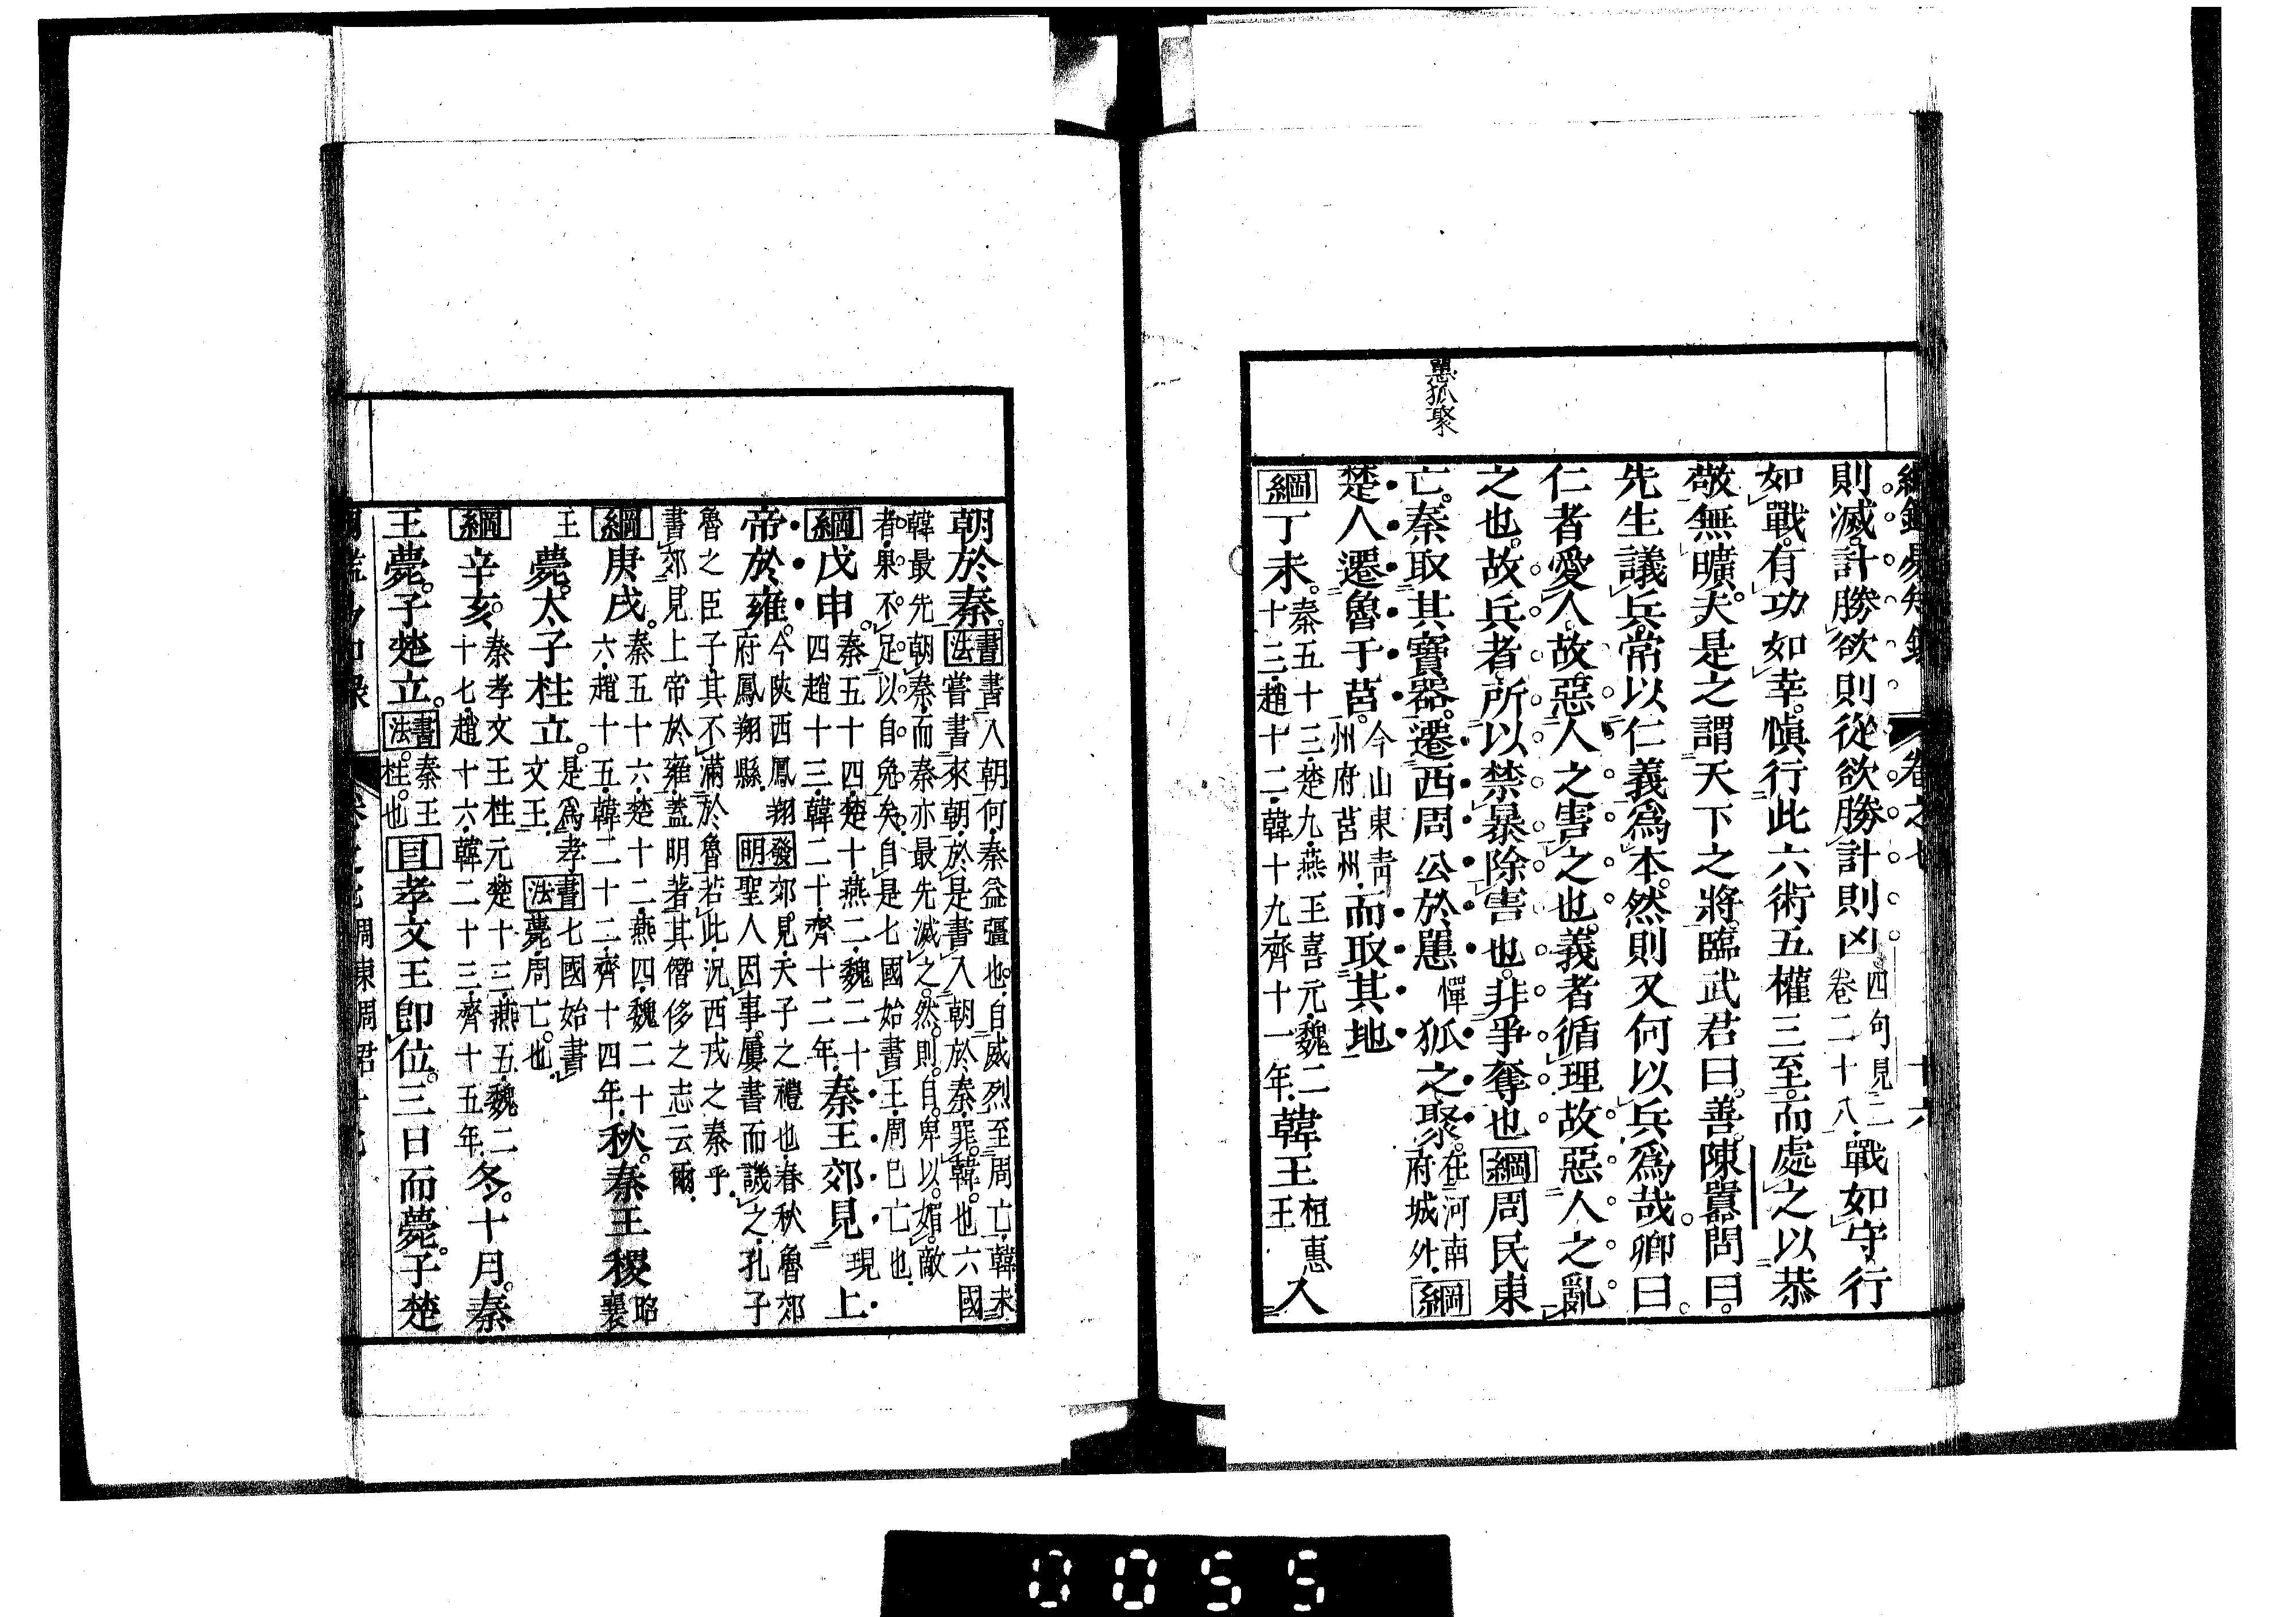 則滅。計勝欲則從。欲勝計則凶。四句見二卷二十八。戰如守。行
如戰。有功如幸。愼行此六術五權三至。而處之以恭
敬無曠。夫是之謂天下之將。臨武君曰。善。陳囂問曰。
先生議兵。常以仁義爲本。然則又何以兵爲哉。卿曰。
仁者愛人。故惡人之害之也。義者循理。故惡人之亂
之也。故兵者。所以禁暴除害也。非爭奪也。綱周民東
亡。秦取其寶器。遷西周公於𢠸憚狐之聚。在河南府城外。綱
楚人遷魯于莒。今山東青州府莒州。而取其地
綱丁未。秦五十三。楚九。燕王喜元。魏二十三。趙十二。韓十九。齊十一年。韓王桓惠王入
𢠸狐聚
卷之七
十六
朝於秦。書法書入朝何。秦益彊也。自威烈至周亡。韓未
嘗書來朝。於是書入朝於秦。罪韓也。六國
韓最先朝秦。而秦亦最先滅之。然則自卑以媚敵
者。果不足以自免矣。自是七國始書王。周已亡也。
綱戊申。秦五十四。楚十。燕二。魏二十四。趙十三。韓二十。齊十二年。秦王郊見現上
帝於雍。今陝西鳳翔府鳳翔縣。發明郊見。天子之禮也。春秋魯郊
聖人因事屢書而譏之。孔子
魯之臣子。其不滿於魯若此。況西戎之秦乎。
書郊見上帝於雍。蓋明著其僭侈之志云爾。
綱庚戌。秦五十六。楚十二。燕四。魏二十六。趙十五。韓二十二。齊十四年。秋。秦王稷昭襄
王薨。太子柱立。是爲孝文王。書法七國始書薨。周亡也。
綱辛亥。秦孝文王柱元。楚十三。燕五。魏二十七。趙十六。韓二十三。齊十五年。冬。十月。秦
王薨。子楚立。書法秦王柱也。目孝文王卽位。三日而薨。子楚
東周君
0055